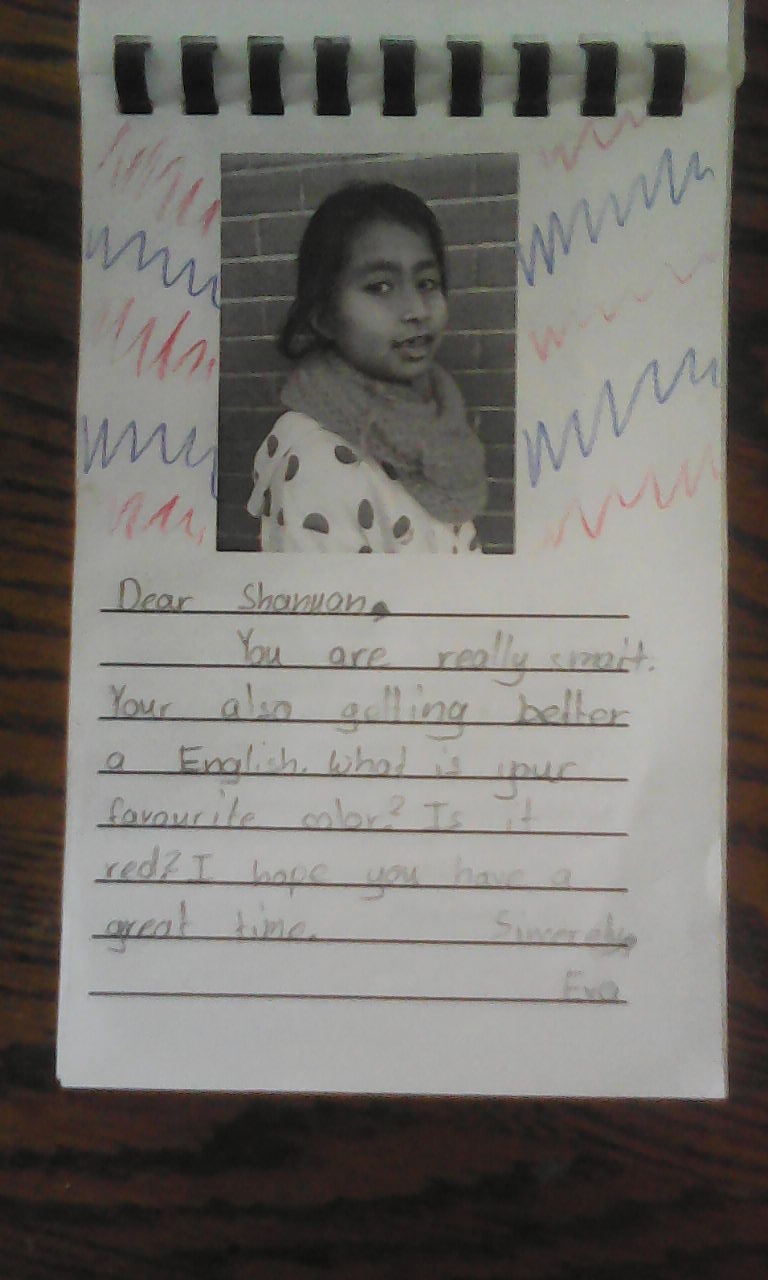 Dear Shanuan,
You are really smart.
Your also getting better
a English. What is your
favourite color? Is it
red? I hope you have a
great time. Sincerely,
Eva